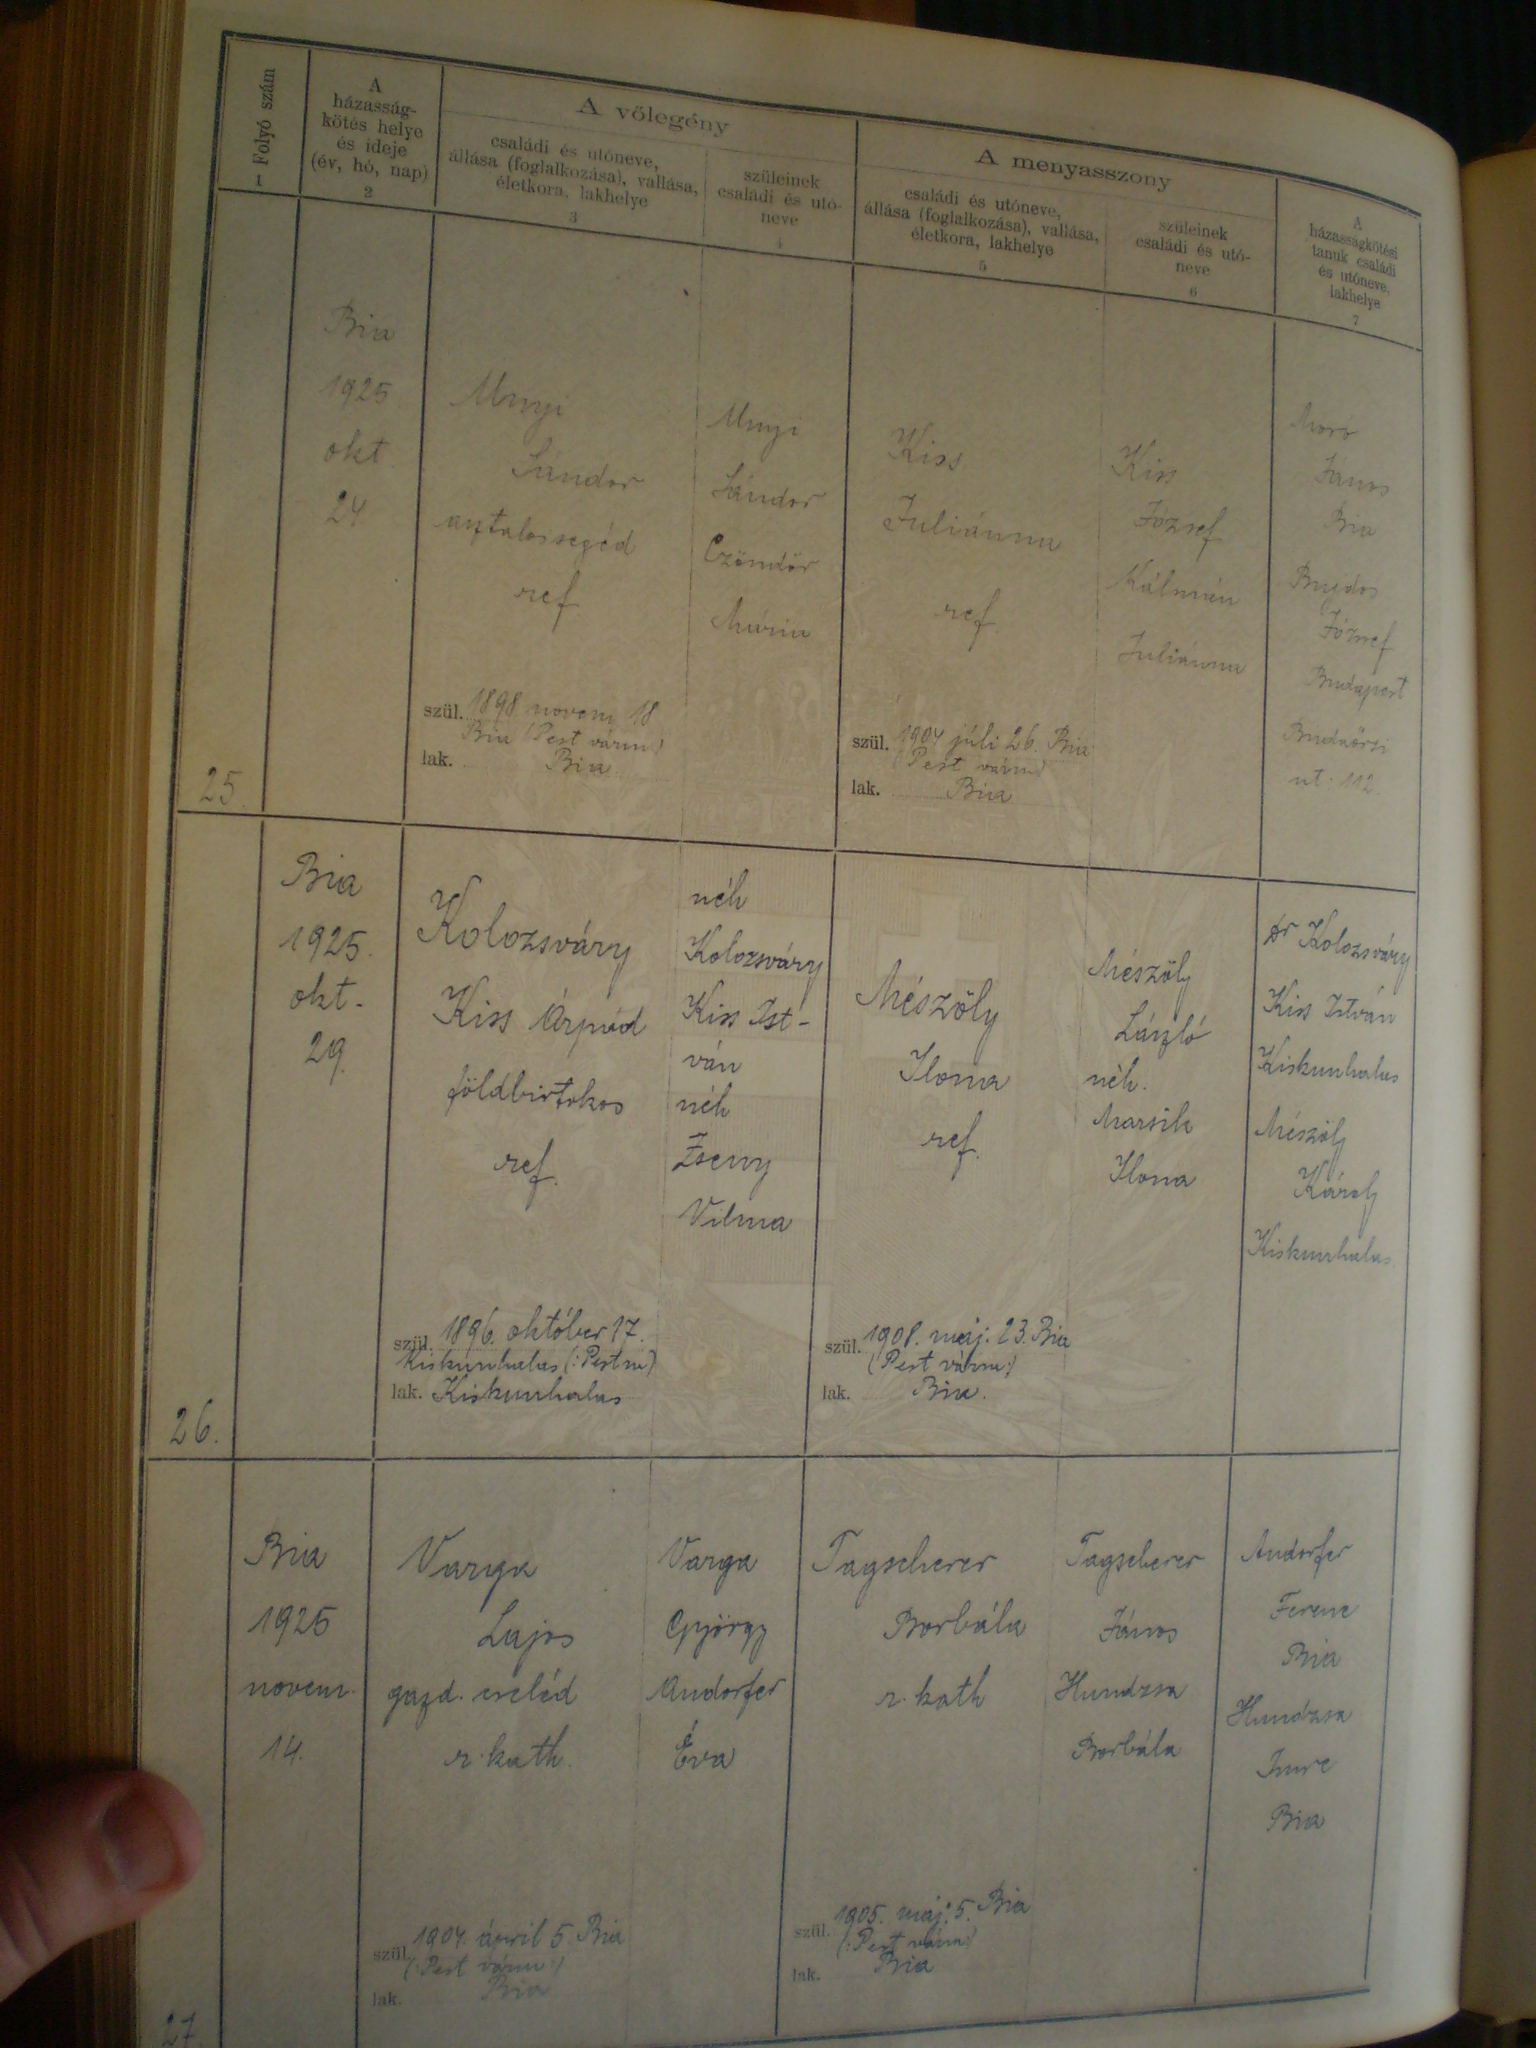 Folyó szám
1
A
házasság-
kötés helye
és ideje
(év, hó, nap)
2
A vőlegény
családi és utóneve,
állása (foglalkozása), vallása,
életkora, lakhelye
3
szüleinek
családi és utó-
neve
4
A menyasszony
családi és utóneve,
állása (foglalkozása), vallása,
életkora, lakhelye
5
szüleinek
családi és utó-
neve
6
A
házasságkötési
tanuk családi
és utóneve,
lakhelye
7
25.
Bia
1925
okt.
24
Unyi
Sándor
asztalossegéd
ref.
szül. 1898 novem 18
Bia (Pest várm:)
lak. Bia
Unyi
Sándor
Czöndör
Mária
Kiss
Juliánna
ref.
szül. 1904 júli 26. Bia
(Pest várm:)
lak. Bia
Kiss
József
Kálmán
Juliánna
János
Bia
Bujdos
József
Budapest
Budaörsi
ut. 112.
26.
Bia
1925.
okt.
29.
Kolozsváry
Kiss Árpád
földbirtokos
ref.
szül. 1896. október 17.
Kiskunhalas (:Pest m)
lak. Kiskunhalas
néh
Kolozsváry
Kiss Ist-
ván
néh
Zseny
Vilma
Mészöly
Ilona
ref.
szül. 1908. máj. 23. Bia
(Pest várm:)
lak. Bia.
Mészöly
László
néh.
Ilona
dr Kolozsváry
Kiss István
Kiskunhalas
Mészöly
Károly
Kiskunhalas
27.
Bia
1925
novem.
14.
Varga
Lajos
gazd. cseléd
r. kath.
szül. 1904. ápril 5. Bia
(:Pest várm:)
lak. Bia
Varga
György
Andorfer
Éva
Tagscherer
Borbála
r. kath
szül. 1905. máj. 5. Bia
(:Pest várm:)
lak. Bia
Tagscherer
János
Hundzsa
Borbála
Andorfer
Ferenc
Bia
Hundzsa
Imre
Bia